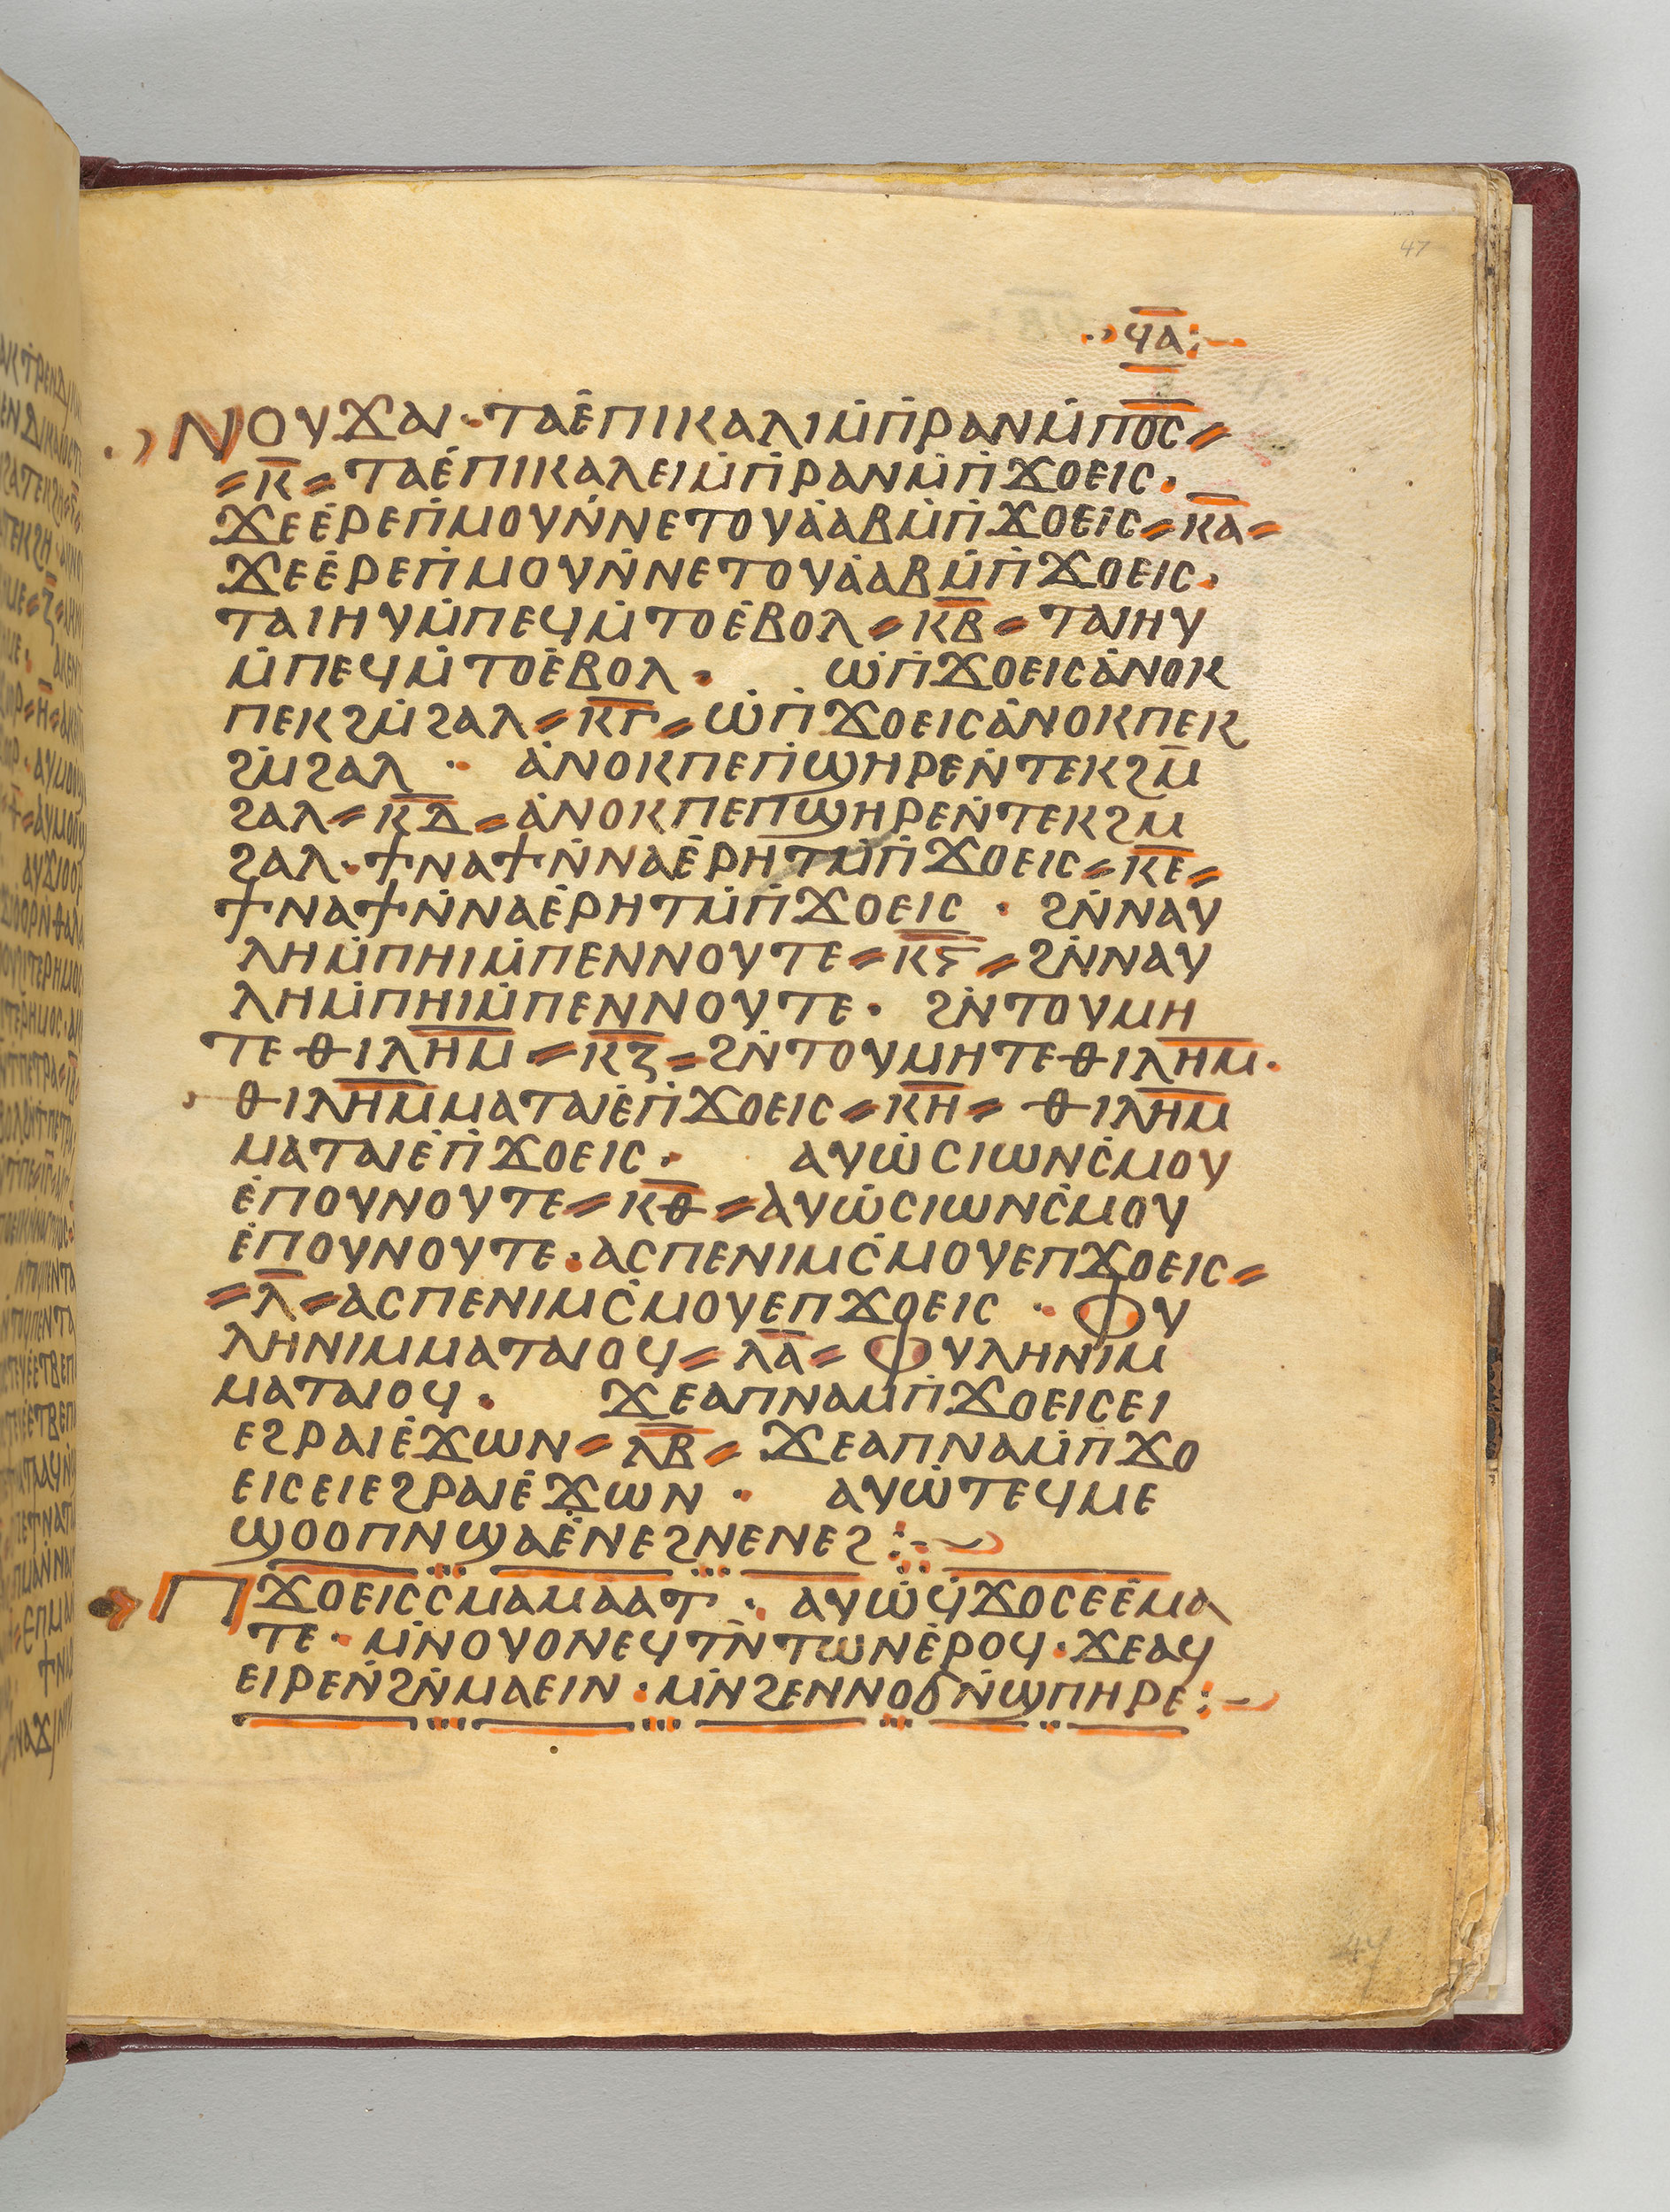 47
ϥ̅ⲁ̅
ⲛⲟⲩϫⲁⲓ· ⲧⲁⲉ̇ⲡⲓⲕⲁⲗⲓⲙ̇ⲡ̇ⲣⲁⲛⲙ̇ⲡⲟ̅ⲥ̅ ⸗
⸗ ⲕ̅ ⸗ ⲧⲁⲉ̇ⲡⲓⲕⲁⲗⲉⲓⲙ̇ⲡ̇ⲣⲁⲛⲙ̇ⲡ̇ϫⲟⲉⲓⲥ·
ϫⲉⲉ̇ⲣⲉⲡ̇ⲙⲟⲩⲛ̇ⲛⲉⲧⲟⲩⲁ̇ⲁⲃⲙ̇ⲡ̇ϫⲟⲉⲓⲥ ⸗ ⲕ̅ⲁ̅ ⸗
ϫⲉⲉ̇ⲣⲉⲡ̇ⲙⲟⲩⲛ̇ⲛⲉⲧⲟⲩⲁ̇ⲁⲃⲙ̇ⲡ̇ϫⲟⲉⲓⲥ·
ⲧⲁⲓⲏⲩⲙ̇ⲡⲉϥⲙ̇ⲧⲟⲉ̇ⲃⲟⲗ ⸗ ⲕ̅ⲃ̅ ⸗ ⲧⲁⲓⲏⲩ
ⲙ̇ⲡⲉϥⲙ̇ⲧⲟⲉ̇ⲃⲟⲗ· ⲱ̇ⲡ̇ϫⲟⲉⲓⲥⲁ̇ⲛⲟⲕ
ⲡⲉⲕϩⲙ̇ϩⲁⲗ ⸗ ⲕ̅ⲅ̅ ⸗ ⲱ̇ⲡ̇ϫⲟⲉⲓⲥⲁ̇ⲛⲟⲕⲡⲉⲕ
ϩⲙ̇ϩⲁⲗ · ⲁ̇ⲛⲟⲕⲡⲉⲡ̇ϣⲏⲣⲉⲛ̇ⲧⲉⲕϩⲙ̅
ϩⲁⲗ ⸗ ⲕ̅ⲇ̅ ⸗ ⲁ̇ⲛⲟⲕⲡⲉⲡϣⲏⲣⲉⲛ̇ⲧⲉⲕϩⲙ
ϩⲁⲗ· ϯⲛⲁϯⲛ̇ⲛⲁⲉ̇ⲣⲏⲧⲙ̇ⲡ̇ϫⲟⲉⲓⲥ ⸗ ⲕ̅ⲉ̅ ⸗
ϯⲛⲁϯⲛ̇ⲛⲁⲉ̇ⲣⲏⲧⲙ̇ⲡ̇ϫⲟⲉⲓⲥ · ϩⲛ̇ⲛⲁⲩ
ⲗⲏⲙ̇ⲡⲏⲓⲙ̇ⲡⲉⲛⲛⲟⲩⲧⲉ ⸗ ⲕ̅ⲋ̅ ⸗ ϩⲛ̇ⲛⲁⲩ
ⲗⲏⲙ̇ⲡⲏⲓⲙ̇ⲡⲉⲛⲛⲟⲩⲧⲉ· ϩⲛ̇ⲧⲟⲩⲙⲏ
ⲧⲉⲑⲓⲗ̅ⲏ̅ⲙ̅ ⸗ ⲕ̅ⲍ̅ ⸗ ϩⲛ̇ⲧⲟⲩⲙⲏⲧⲉⲑⲓⲗ̅ⲏ̅ⲙ̅·
ⲑⲓⲗ̅ⲏ̅ⲙ̅ⲙⲁⲧⲁⲓⲉ̇ⲡ̇ϫⲟⲉⲓⲥ ⸗ ⲕ̅ⲏ̅ ⸗ ⲑⲓⲗ̅ⲏ̅ⲙ̅
ⲙⲁⲧⲁⲓⲉ̇ⲡ̇ϫⲟⲉⲓⲥ· ⲁⲩⲱ̇ⲥⲓⲱⲛⲥ̇ⲙⲟⲩ
ⲉ̇ⲡⲟⲩⲛⲟⲩⲧⲉ ⸗ ⲕ̅ⲑ̅ ⸗ ⲁⲩⲱ̇ⲥⲓⲱⲛⲥ̇ⲙⲟⲩ
ⲉ̇ⲡⲟⲩⲛⲟⲩⲧⲉ· ⲁⲥⲡⲉⲛⲓⲙⲥ̇ⲙⲟⲩⲉⲡϫⲟⲉⲓⲥ ⸗
⸗ ⲗ̅ ⸗ ⲁⲥⲡⲉⲛⲓⲙⲥ̇ⲙⲟⲩⲉⲡϫⲟⲉⲓⲥ · ⲫⲩ
ⲗⲏⲛⲓⲙⲙⲁⲧⲁⲓⲟϥ ⸗ ⲗ̅ⲁ̅ ⸗ ⲫⲩⲗⲏⲛⲓⲙ
ⲙⲁⲧⲁⲓⲟϥ· ϫⲉⲁⲡⲛⲁⲙ̇ⲡ̇ϫⲟⲉⲓⲥⲉⲓ
ⲉϩⲣⲁⲓⲉ̇ϫⲱⲛ ⸗ ⲗ̅ⲃ̅ ⸗ ϫⲉⲁⲡⲛⲁⲙ̇ⲡ̇ϫⲟ
ⲉⲓⲥⲉⲓⲉϩⲣⲁⲓⲉ̇ϫⲱⲛ · ⲁⲩⲱ̇ⲧⲉϥⲙⲉ
ϣⲟⲟⲡⲛϣⲁⲉ̇ⲛⲉϩⲛⲉⲛⲉϩ:~
ⲡϫⲟⲉⲓⲥⲥ̇ⲙⲁⲙⲁⲁⲧ · ⲁⲩⲱ̇ϥ̇ϫⲟⲥⲉⲉ̇ⲙⲁ
ⲧⲉ· ⲙ̇ⲛⲟⲩⲟⲛⲉϥⲧⲛ̇ⲧⲱⲛⲉ̇ⲣⲟϥ· ϫⲉⲁϥ
ⲉⲓⲣⲉⲛ̇ϩⲛ̇ⲙⲁⲉⲓⲛ· ⲙⲛ̇ϩⲉⲛⲛⲟϭⲛ̇ϣⲡⲏⲣⲉ:~